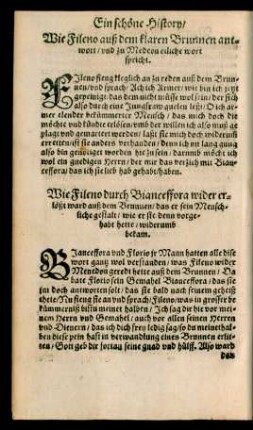 Ein schöne History/
Wie Fileno auß dem klaren Brunnen ant-
wort / vnd zu Medeon etliche wort
spricht.
FIleno fieng kleglich an zu reden auß dem Brun-
nen / vnd sprach: Ach ich Armer / wie bin ich jetzt
gepeinigt / das dem nicht müsse wol sein / der sich
also durch eine Jungfraw zuelen leßt / Dich ar-
mer elender bekümmerter Mensch / das mich doch die
möchte vnd kündte erlösen / vmb der willen ich also muß ge-
plagt vnd gemartert werden / laßt sie mich doch widerumb
erkentniß sie anders vorhanden / denn ich nu lang gnug
also bin gepeiniget worden hie zu sein / darumb möcht ich
wol ein gnedigen Herrn / der mir das verzich mit Bian-
ceffora / das ich sie lieb hab gehabt haben.
Wie Fileno durch Bianceffora wider er-
lößt ward auß dem Brunnen / das er sein Mensch-
liche gestalt / wie er sie denn vorge-
habt hette / widerumb
bekam.
BIanceffora vnd Florio jr Mann hatten alle dise
wort gantz wol verstanden / was Fileno wider
Menedon geredt hette auß dem Brunnen / Da
bate Florio sein Gemahel Bianceffora / das sie
jm doch antworten solt / das sie bald nach seinem geheiß
thete / Nu fieng sie an vnd sprach / Fileno / was in grosser be-
kümmerniß bistu meinet halben / Ich sag dir hie vor mei-
nem Herrn vnd Gemahel / auch vor allen seinen Herren
vnd Dienern / das ich dich frey ledig sag / so du meinet hal-
ben diese pein hast in verwandlung eines Brunnen erlit-
ten / Gott geb dir fortan seine gnad vnd hülff. Also ward
das